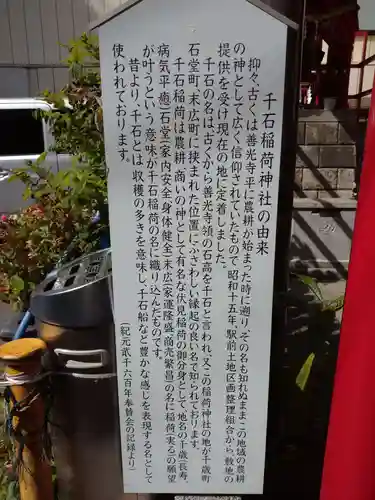 千石稲荷神社の由来
抑々古くは善光寺平に農耕が始まった時に遡り、その名も知れぬままこの地域の農耕
の神として広く信仰されていたもので昭和十五年、駅前土地区画整理組合から、敷地の
提供を受け現在の地に定着しました。
千石の名は古くから善光寺領の石高を千石と言われ、又この稲荷神社の地が千歳町
石堂町、末広町に挟まれた、ふさわしい縁起の良い名で知られております。
千石稲荷は農耕、商いの神として有名な伏見稲荷の御分身として、地名の千歳(長寿、
病気平癒)石堂(家内安全、身体健全)末広(家運隆盛、商売繁昌)の名に稲荷(実る)の願望
が叶うという意味が千石稲荷の名に織り込んだものです。
昔より、千石とは収穫の多きを意味し、千石船など豊かな感じを表現する名として
使われております。
(紀元貳千六百年奉賛会の記録より)